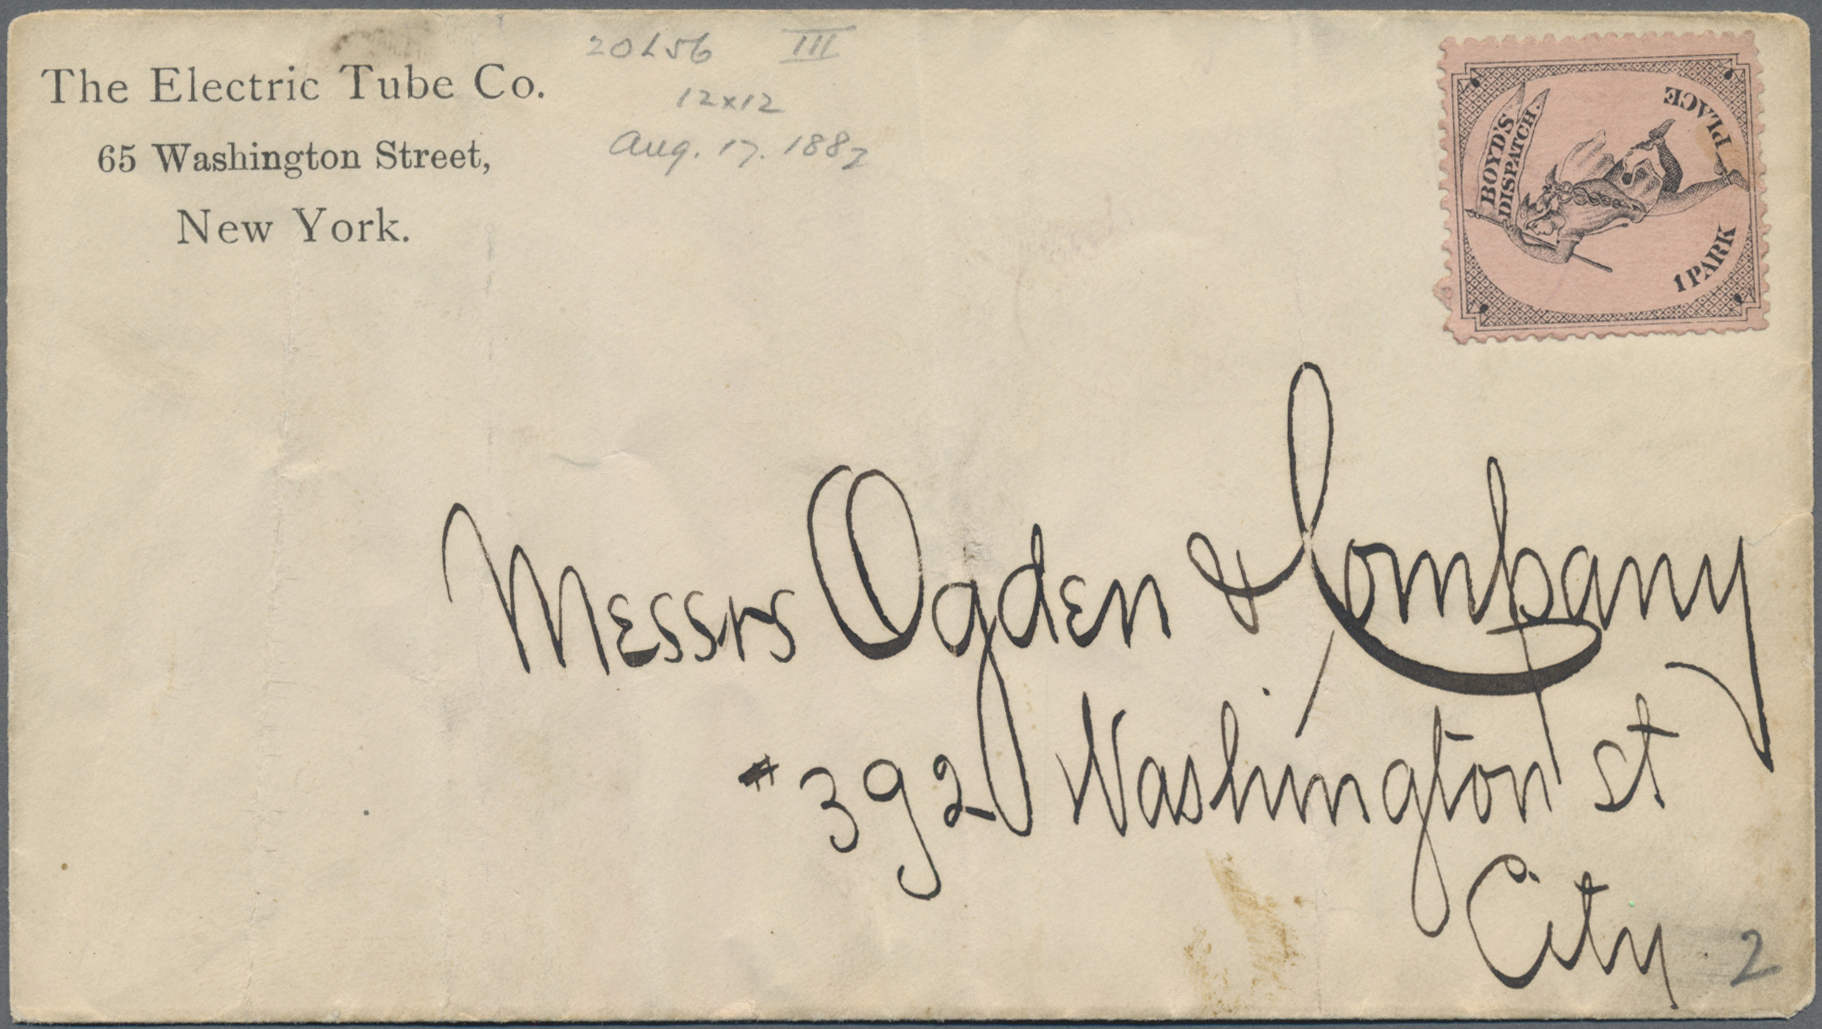 The Electric Tube Co.
65 Washington Street,
New York.
20L56 III
12x12
Aug. 17. 1882
BOYD'S
DISPATCH.
1 PARK PLACE
Messrs Ogden & Company
#392 Washington St
City
2